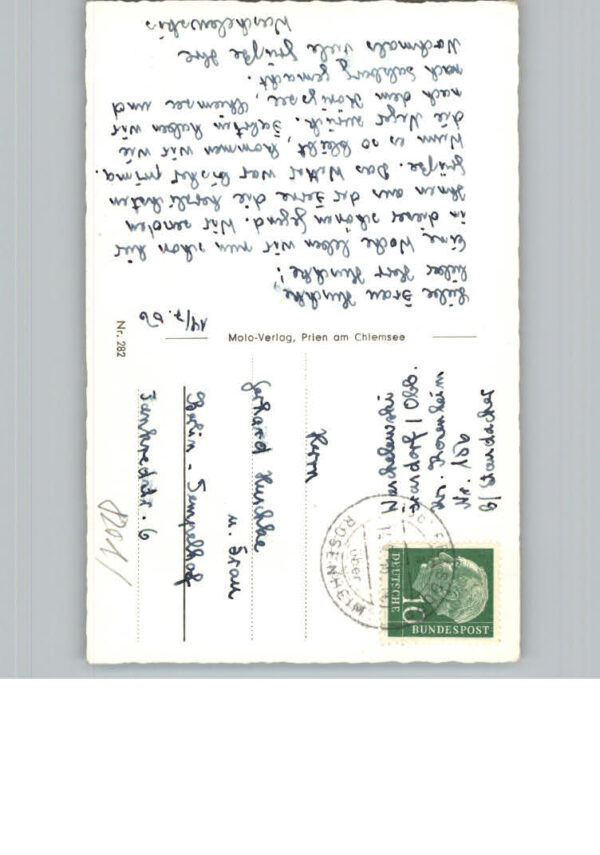 14/7.56
Liebe Frau Huschke
lieber Herr Huschke!
Eine Woche leben wir nun schon hier
in dieser schönen Gegend. Wir senden
Ihnen aus der Ferne die herzlichsten
Grüße. Das Wetter war bisher prima.
Wenn es so bleibt, kommen wir wie
die Neger zurück. Fahrten haben wir
nach dem Königssee, Chiemsee und
nach Salzburg gemacht.
Nochmals viele Grüße Ihre
Molo-Verlag, Prien am Chiemsee
Nr. 282
Frasdorf / Obb.
Krs. Rosenheim
Nr. 189
b/ Staudacher
Herrn
Gerhard Huschke
u. Frau
Berlin - Tempelhof
6
über
ROSENHEIM
10
DEUTSCHE
BUNDESPOST